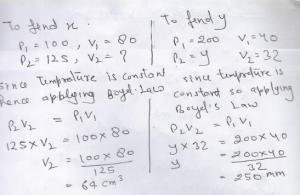 To find x.
P₁ = 100 , V₁ = 80
P₂ = 125 , V₂ = ?
since Temprature is constant
Hence applying Boyel's Law
P₂V₂ = P₁V₁
125 × V₂ = 100 × 80
V₂ = 100 × 80
125
= 64 cm³
To find y
P₁ = 200 V₁ = 40
P₂ = y V₂ = 32
since temprature is
constant so applying
Boyel's Law
P₂V₂ = P₁V₁
y × 32 = 200 × 40
y = 200 × 40
32
= 250 mm